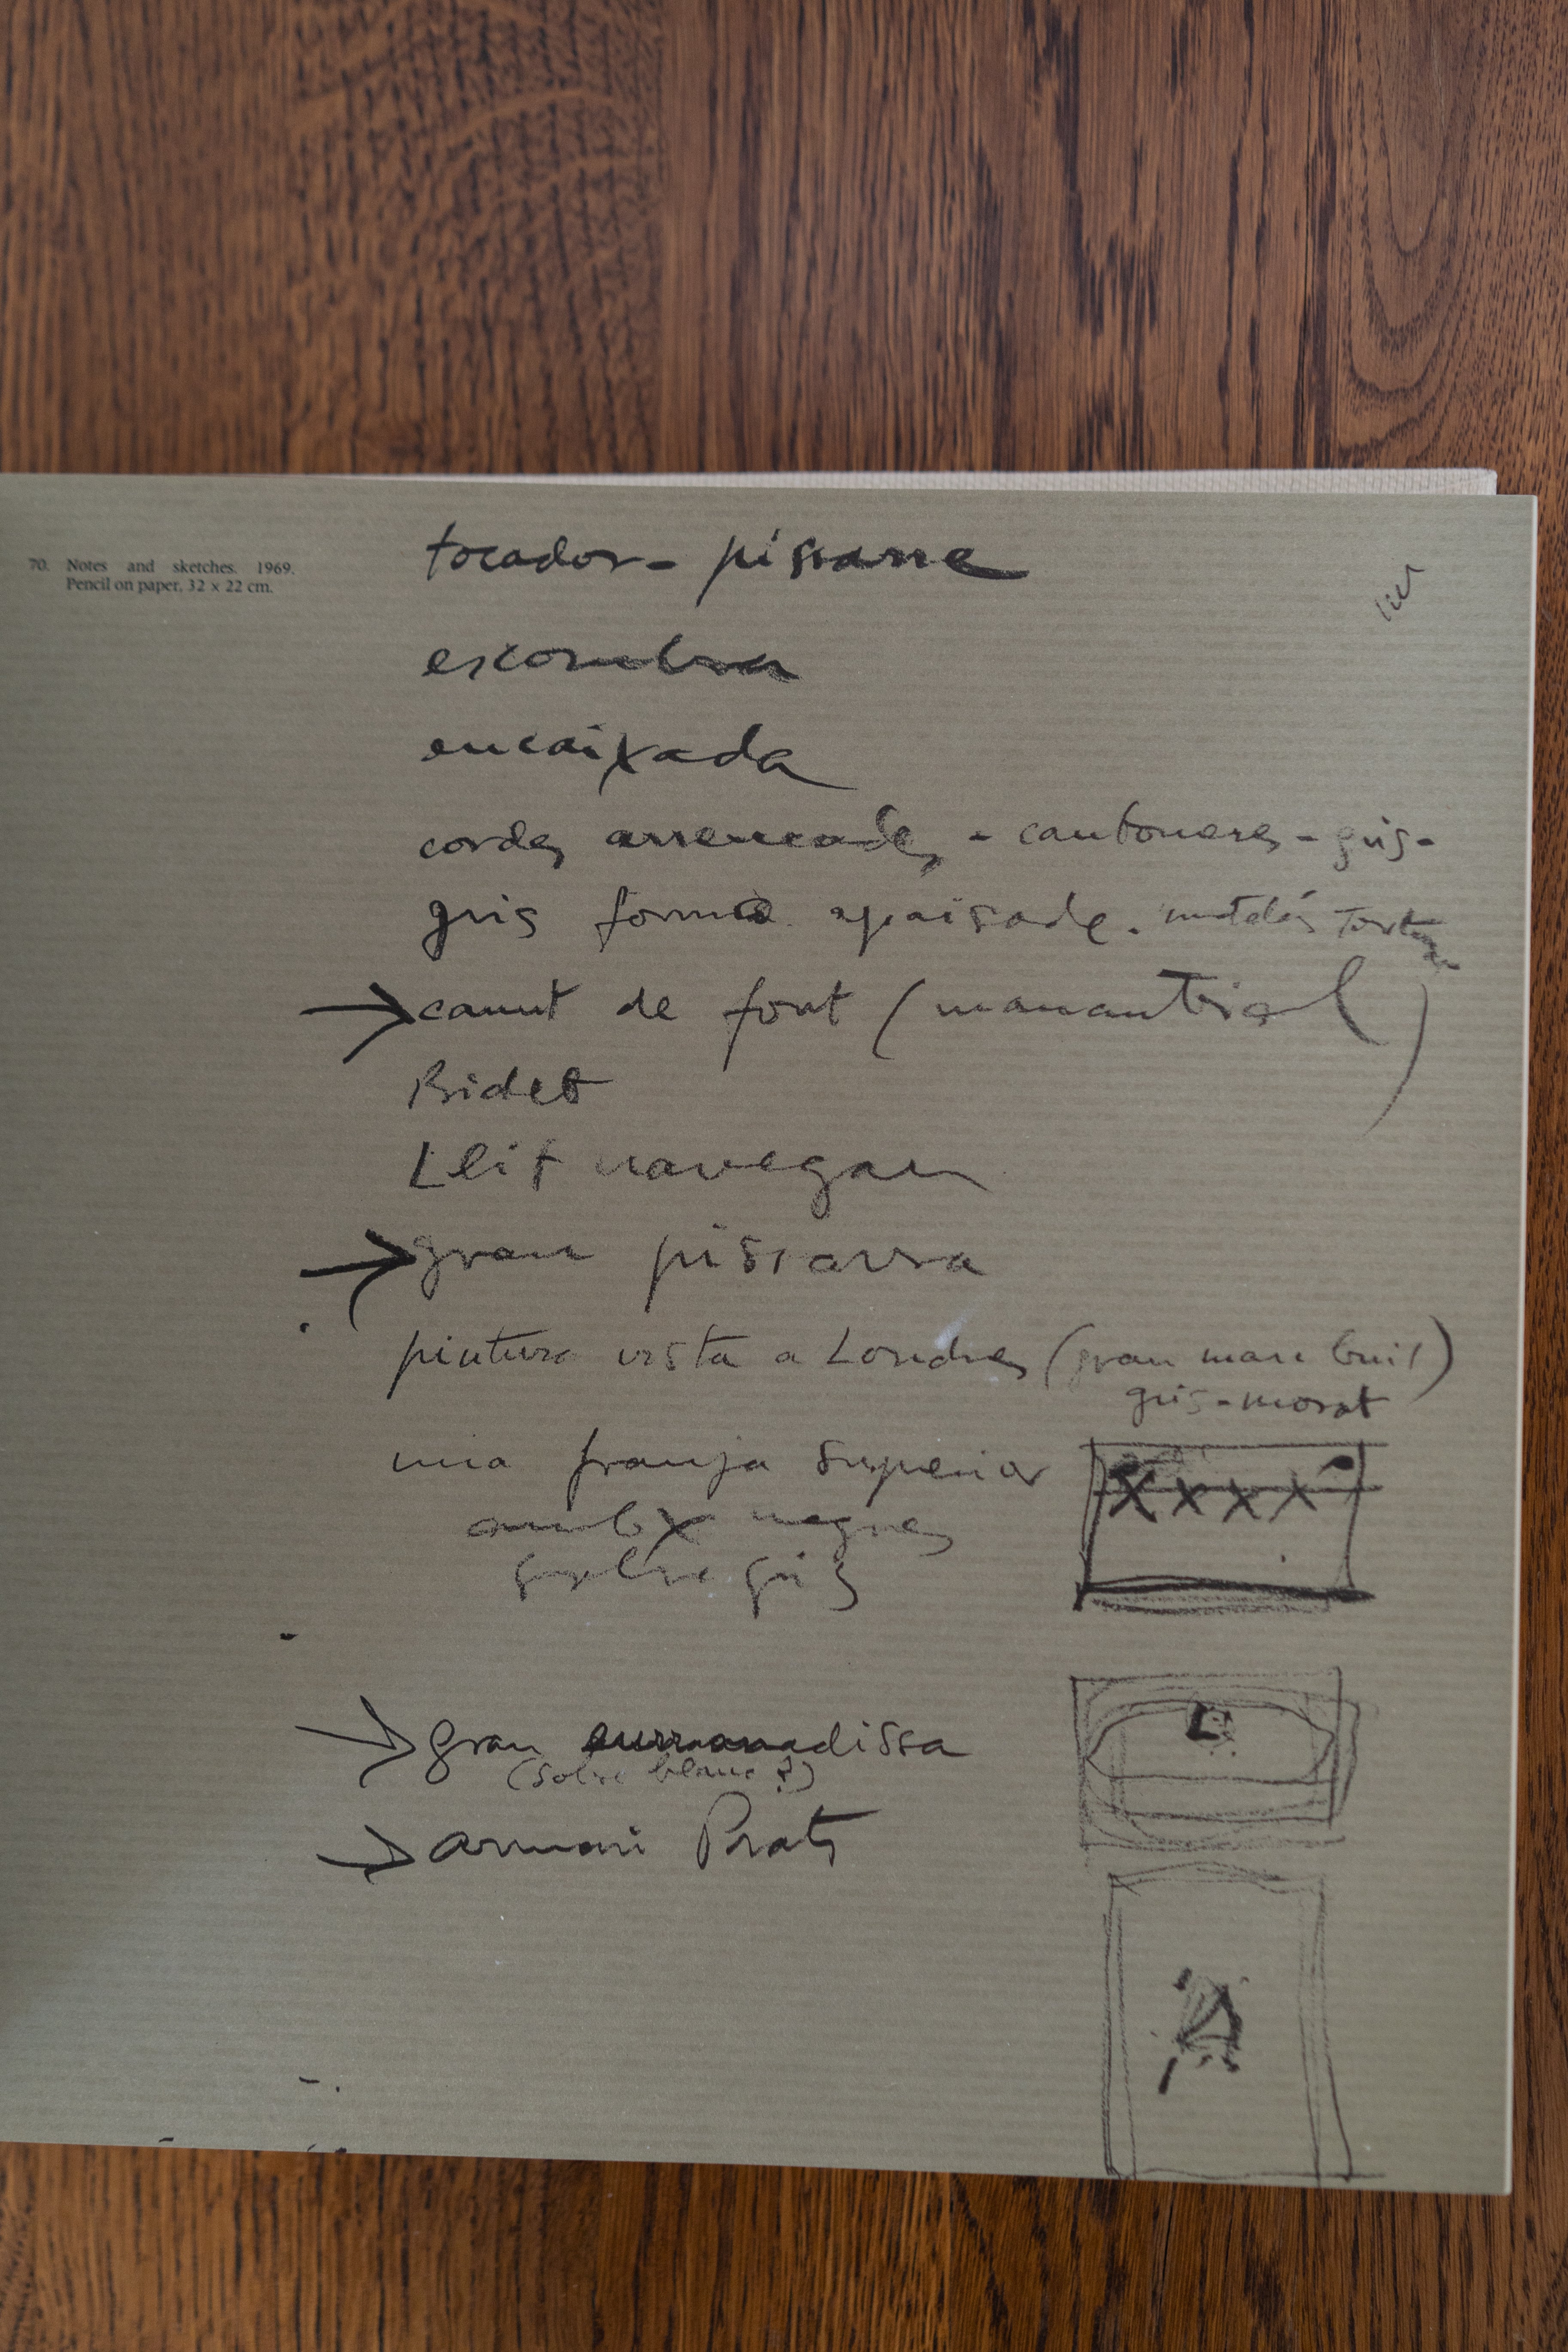 70. Notes and sketches. 1969.
Pencil on paper, 32 x 22 cm.
tocador - pissarre
escombra
encaixada
cordes arrencades - cantoneres - gris -
gris forma apaisade. matalás
canut de font (manantial)
Bidet
Llit navegan
gran pissarra
pintura vista a Londres (gran marc buit)
gris-morat
una franja superior
amb x negres
sobre gris
XXXX
gran
(sobre blanc?)
armari Prats